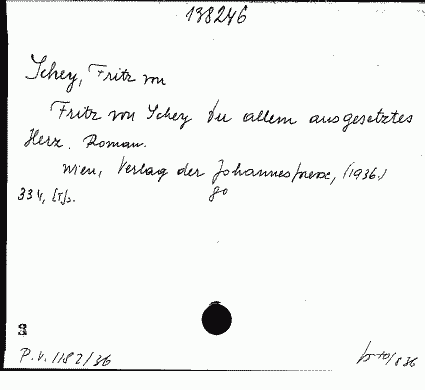 138246
Schey, Fritz von
Fritz von Schey Du allem ausgesetztes
Herz. Roman.
Wien, Verlag der Johannespresse, (1936.)
334, [1]s. 8o
P.V. 1182/36